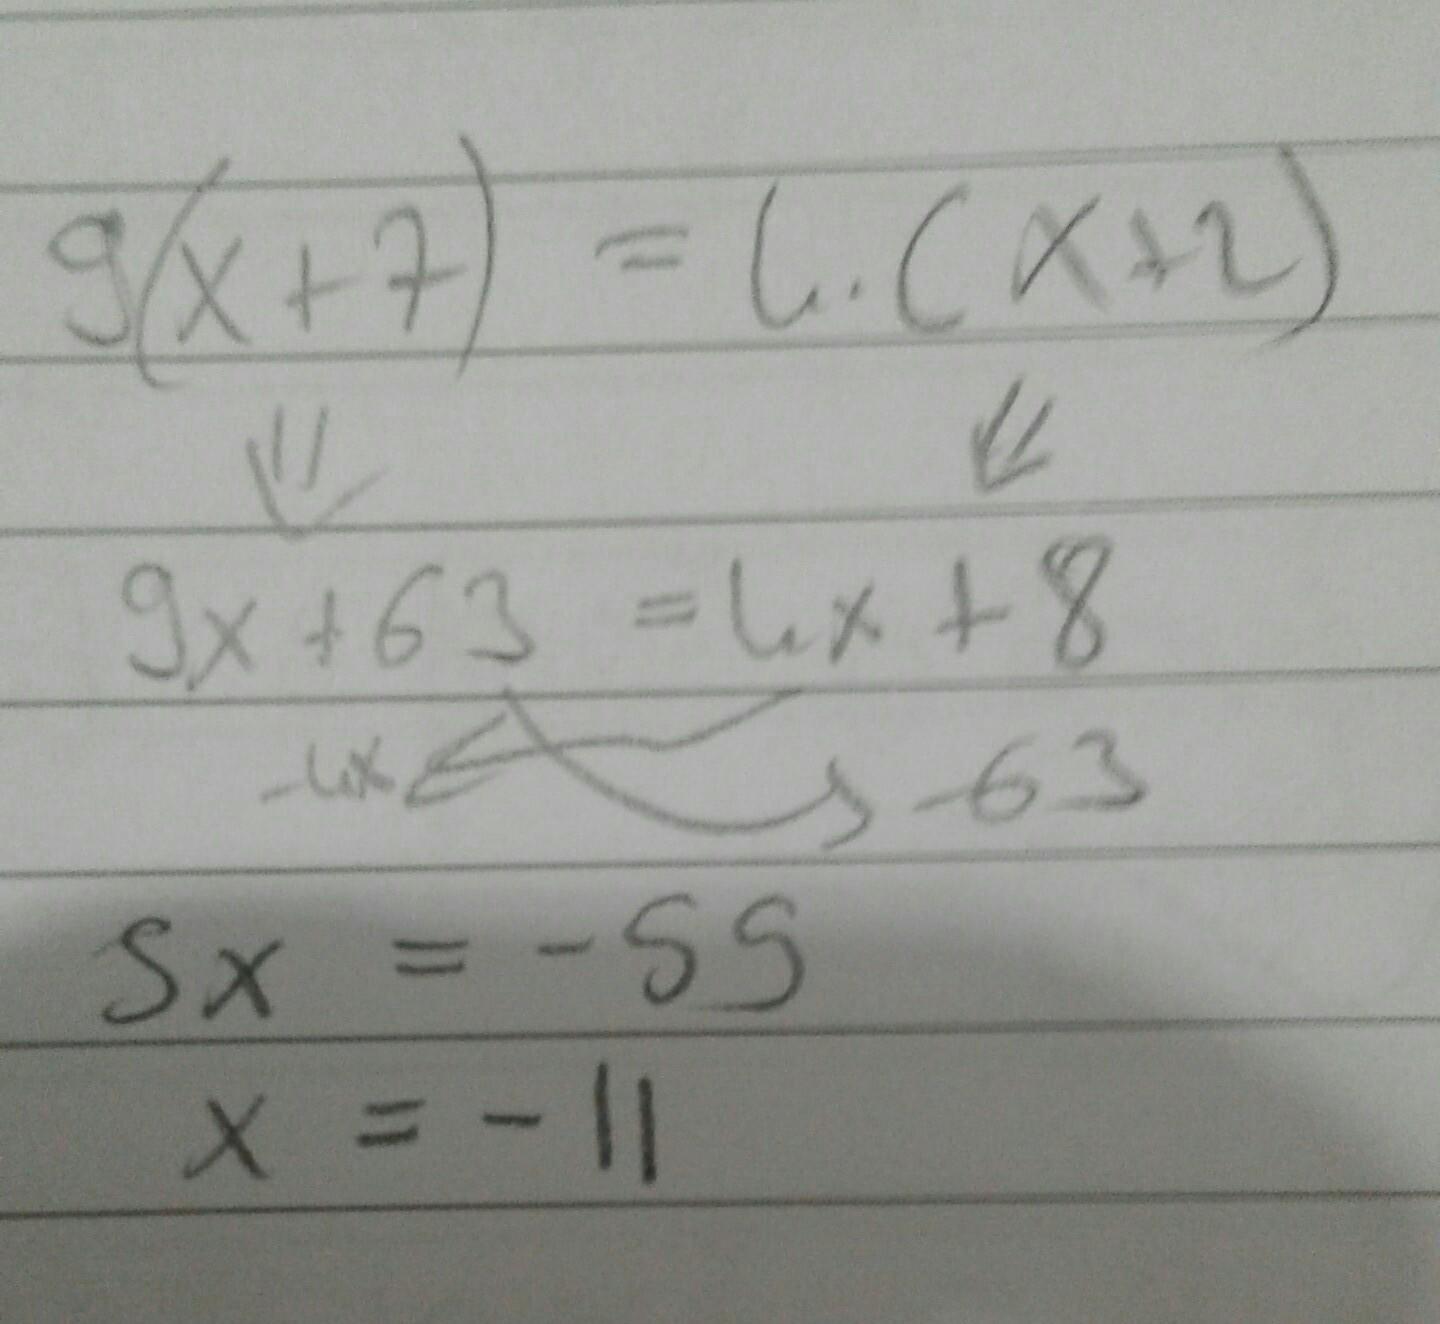 9(x+7) = 4.(x+2)
9x+63 = 4x+8
-4x -63
5x = -55
x = -11